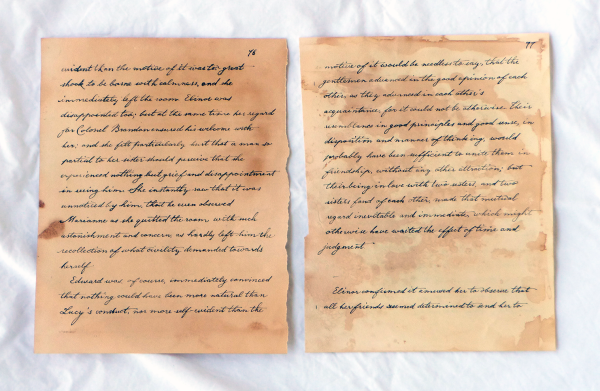 76
evident than the motive of it was too great
shock to be borne with calmness, and she
immediately left the room Elinor was
disappointed too; but at the same time her regard
for Colonel Brandon ensured his welcome with
her; and she felt particularly hurt that a man so
partial to her sister should perceive that she
experienced nothing but grief and disappointment
in seeing him She instantly saw that it was
unnoticed by him, that he even observed
Marianne as she quitted the room with such
astonishment and concern as hardly left him the
recollection of what civility demanded towards
herself
Edward was of course, immediately convinced
that nothing could have been more natural than
Lucy's conduct, nor more self-evident than the
77
motive of it would be needless to say, that the
gentlemen advanced in the good opinion of each
other, as they advanced in each other's
acquaintance, for it could not be otherwise Their
resemblance in good principles and good sense, in
disposition and manner of thinking, would
probably have been sufficient to unite them in
friendship, without any other attraction; but
their being in love with two sisters, and two
sisters fond of each other, made that mutual
regard inevitable and immediate, which might
otherwise have waited the effect of time and
judgment
Elinor confirmed it amused her to observe that
all her friends seemed determined to send her to